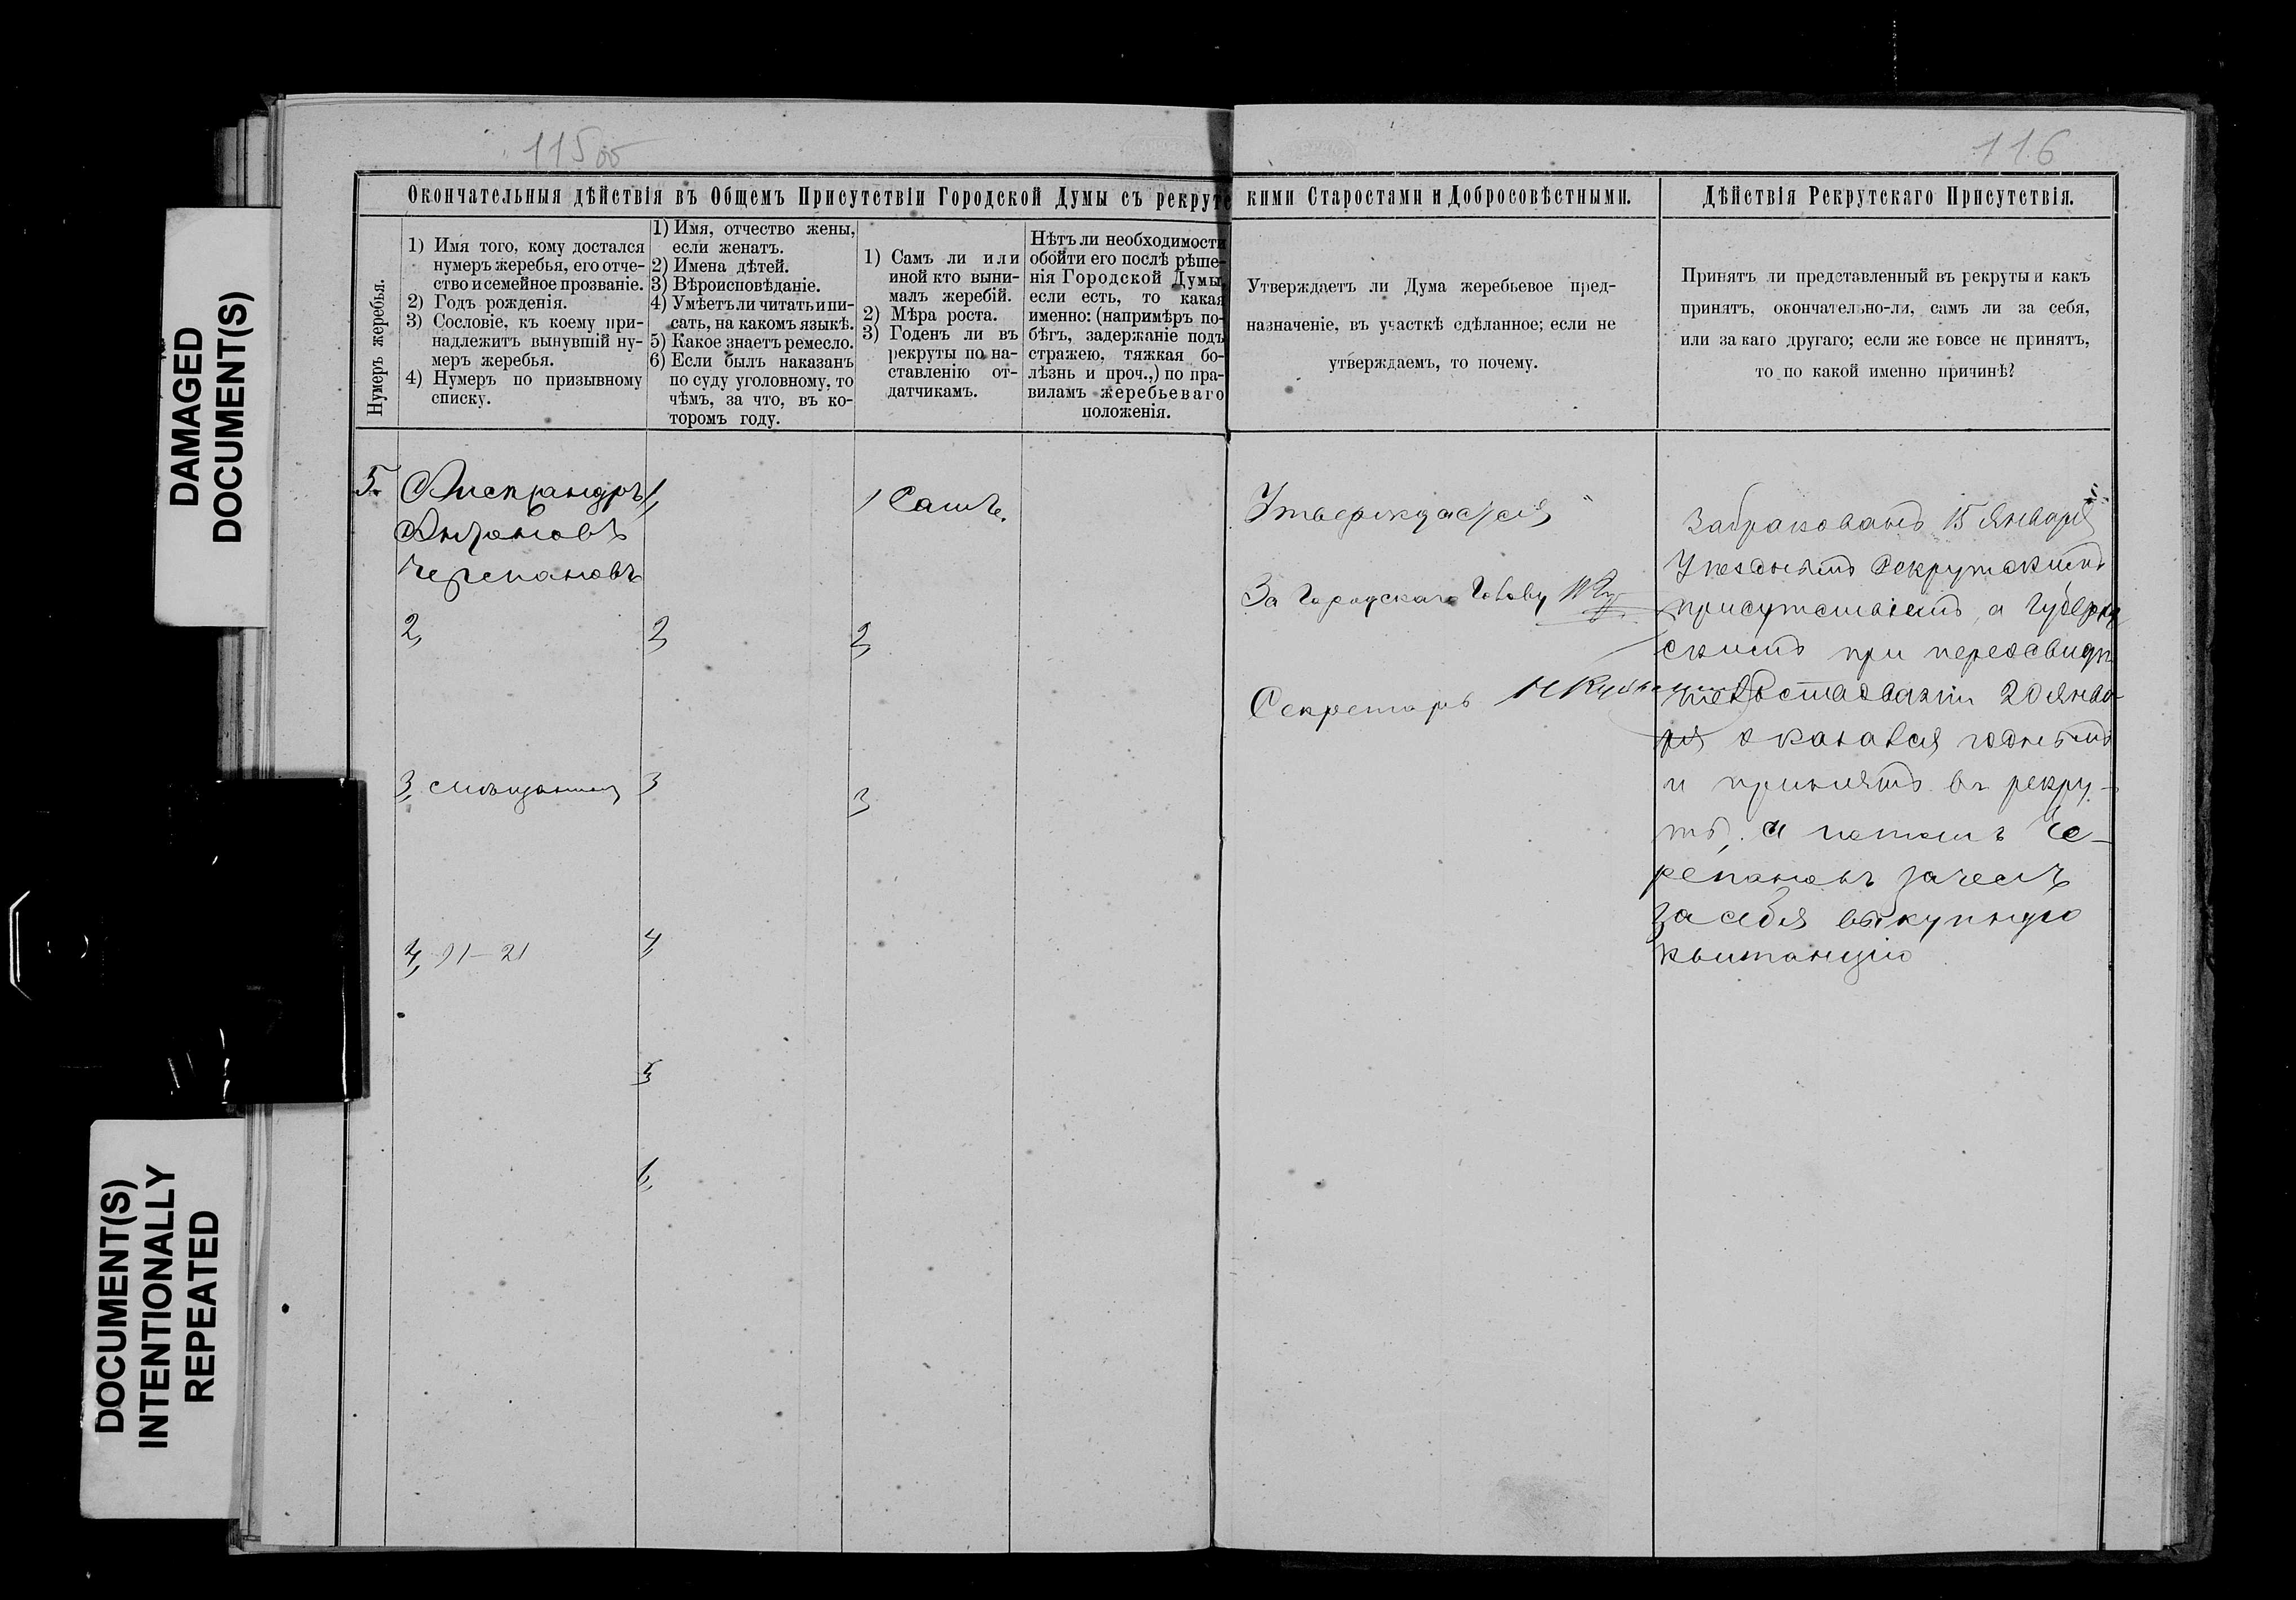 115об
116
Окончательныя дѣйствія въ Общемъ Присутствіи Городской Думы съ рекрутс
кими Старостами и Добросовѣстными.
Дѣйствія Рекрутскаго Присутствія.
Нумеръ жеребья.
1) Имя того, кому достался
нумеръ жеребья, его отче-
ство и семейное прозваніе.
2) Годъ рожденія.
3) Сословіе, къ коему при-
надлежитъ вынувшій ну-
меръ жеребья.
4) Нумеръ по призывному
списку.
1) Имя, отчество жены,
если женатъ.
2) Имена дѣтей.
3) Вѣроисповѣданіе.
4) Умѣетъ ли читать и пи-
сать, на какомъ языкѣ.
5) Какое знаетъ ремесло.
6) Если былъ наказанъ
по суду уголовному, то
чѣмъ, за что, въ ко-
торомъ году.
1) Самъ ли или
иной кто выни-
малъ жеребій.
2) Мѣра роста.
3) Годенъ ли въ
рекруты по на-
ставленію от-
датчикамъ.
Нѣтъ ли необходимости
обойти его послѣ рѣше-
нія Городской Думы,
если есть, то какая
именно: (напримѣръ по-
бѣгъ, задержаніе подъ
стражею, тяжкая бо-
лѣзнь и проч.,) по пра-
виламъ жеребьеваго
положенія.
Утверждаетъ ли Дума жеребьевое пред-
назначеніе, въ участкѣ сдѣланное; если не
утверждаемъ, то почему.
Принятъ ли представленный въ рекруты и какъ
принятъ, окончательно-ли, самъ ли за себя,
или за каго другаго; если же вовсе не принятъ,
то по какой именно причинѣ?
5. Александръ
Антоновъ
Черепановъ
2,
3, с мѣщанинъ
4, 91—21
1,
2,
3
4,
5
6,
1 Самъ.
2,
3
Утверждается
За Городскаго Голову
Секретарь
Забракованъ 15 Января
Уѣзднымъ Рекрутскимъ
присутствіемъ, а Губерн
скимъ при переосвидѣ
тельствованіи 20 Янва-
ря оказался годнымъ
и принятъ въ рекру-
ты, а потомъ Че-
репановъ зачелъ
за себя выкупную
квитанцію
DAMAGED
DOCUMENT(S)
DOCUMENT(S)
INTENTIONALLY
REPEATED